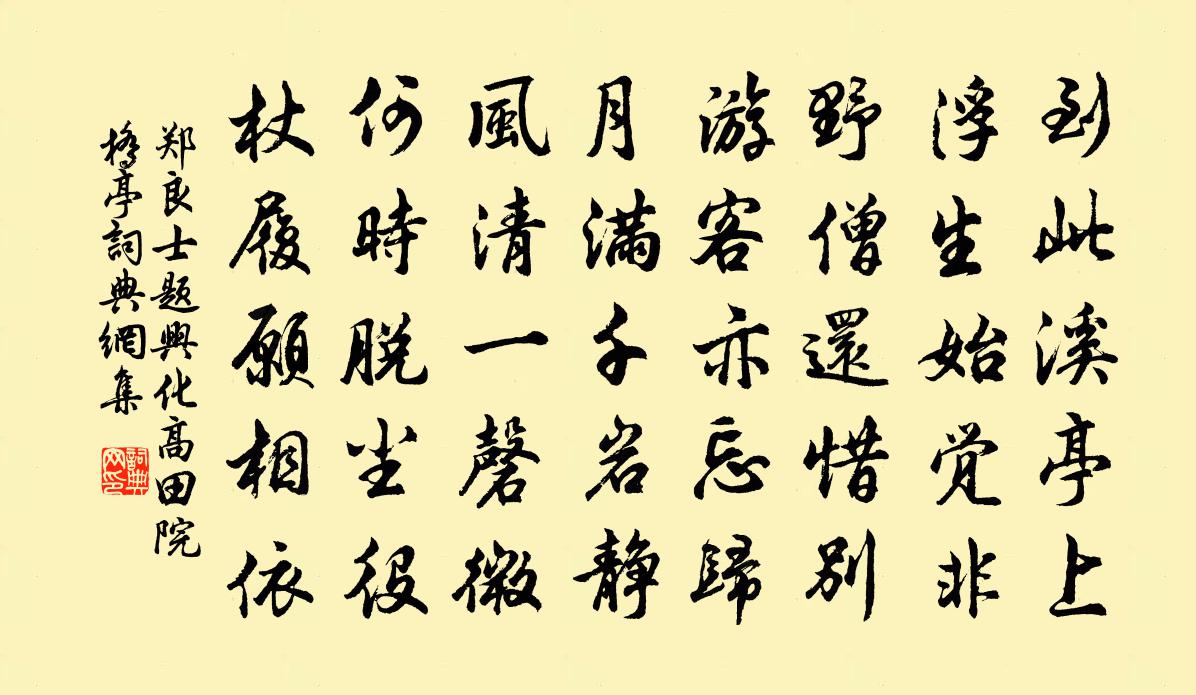 到此溪亭上
浮生始觉非
野僧還惜别
游客亦忘歸
月满千岩静
風清一磬微
何時脱尘役
杖履願相依
郑良士题興化高田院
橋亭詞典網集
詞典
网印